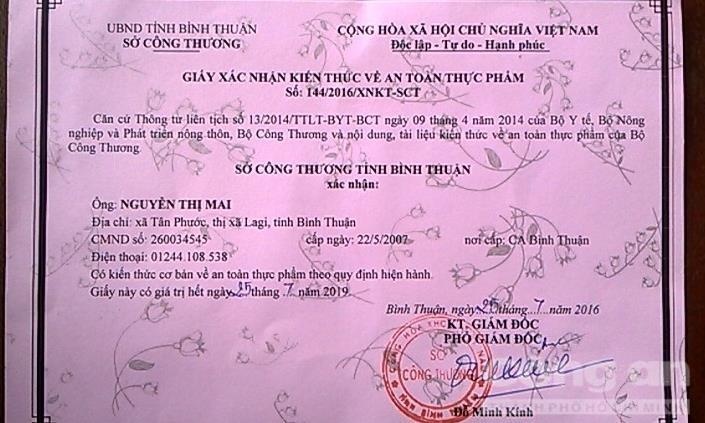 UBND TỈNH BÌNH THUẬN
SỞ CÔNG THƯƠNG
CỘNG HÒA XÃ HỘI CHỦ NGHĨA VIỆT NAM
Độc lập - Tự do - Hạnh phúc
GIẤY XÁC NHẬN KIẾN THỨC VỀ AN TOÀN THỰC PHẨM
Số: 144/2016/XNKT-SCT
Căn cứ Thông tư liên tịch số 13/2014/TTLT-BYT-BCT ngày 09 tháng 4 năm 2014 của Bộ Y tế, Bộ Nông
nghiệp và Phát triển nông thôn, Bộ Công Thương và nội dung, tài liệu kiến thức về an toàn thực phẩm của Bộ
Công Thương.
SỞ CÔNG THƯƠNG TỈNH BÌNH THUẬN
xác nhận:
Ông: NGUYỄN THỊ MAI
Địa chỉ: xã Tân Phước, thị xã Lagi, tỉnh Bình Thuận
CMND số: 260034545 cấp ngày: 22/5/2007 nơi cấp: CA Bình Thuận
Điện thoại: 01244.108.538
Có kiến thức cơ bản về an toàn thực phẩm theo quy định hiện hành.
Giấy này có giá trị hết ngày 25 tháng .7 năm 2019.
Bình Thuận, ngày 25 tháng...7...năm 2016
KT. GIÁM ĐỐC
PHÓ GIÁM ĐỐC
SỞ
CÔNG THƯƠNG
Đỗ Minh Kính